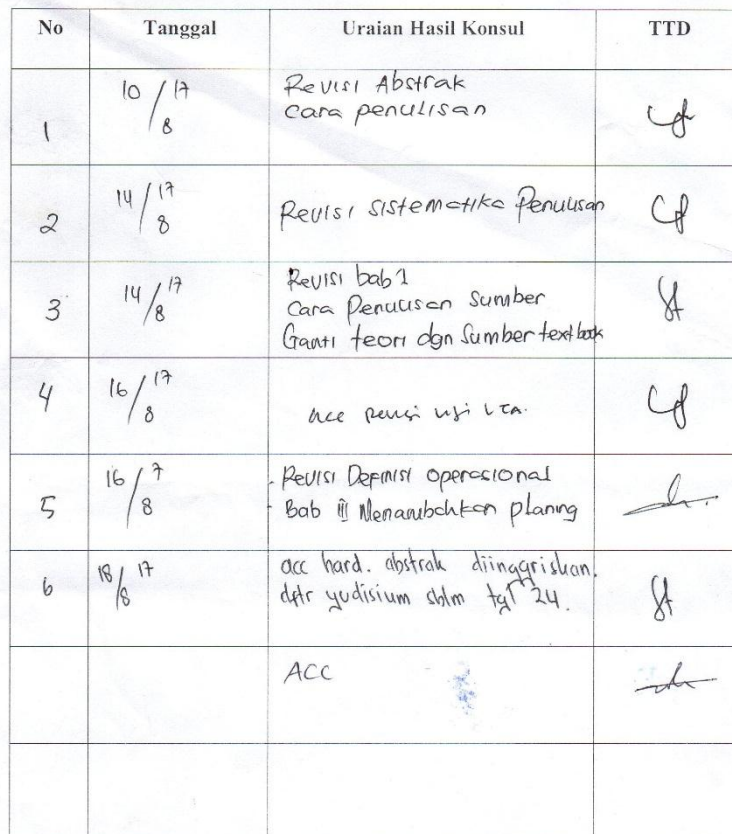 No Tanggal Uraian Hasil Konsul TTD
1 10/8 17 Revisi Abstrak
Cara penulisan
2 14/8 17 Revisi sistematika Penulisan
3 14/8 17 Revisi bab 1
Cara Penulisan Sumber
Ganti teori dgn Sumber textbook
4 16/8 17 acc uji LTA.
5 16/8 7 - Revisi Definisi operasional
- Bab III Menambahkan planing
6 18/8 17 acc hard. abstrak diinggriskan.
dftr yudisium sblm tgl 24.
ACC